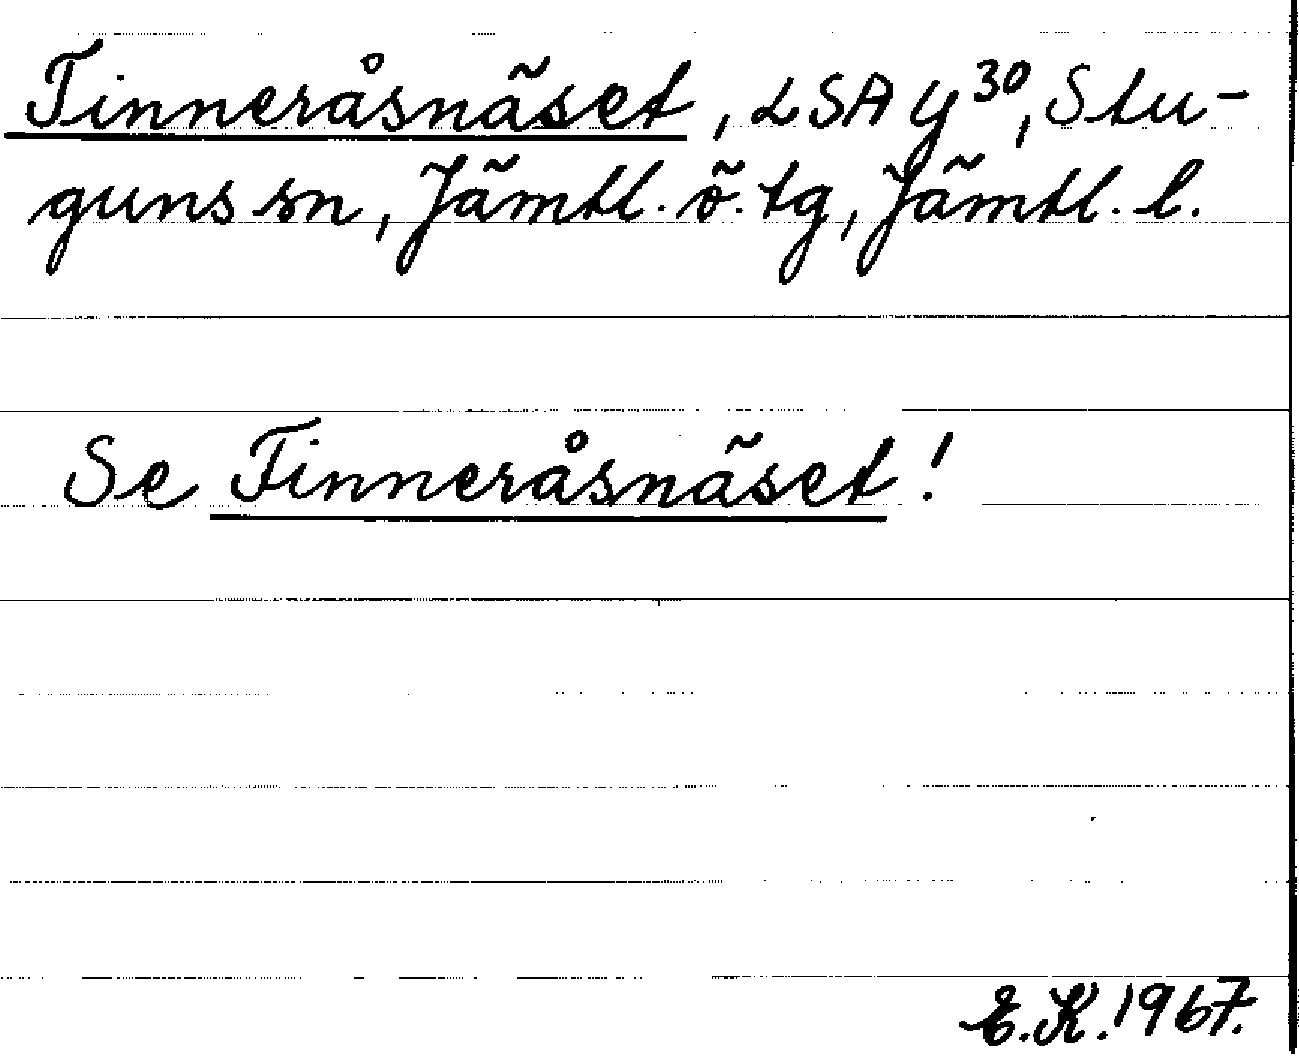 Tinneråsnäset, LSA y³⁰, Stu-
guns sn, Jämtl. ö. tg, Jämtl. l.
Se Finneråsnäset!
E.K. 1967.